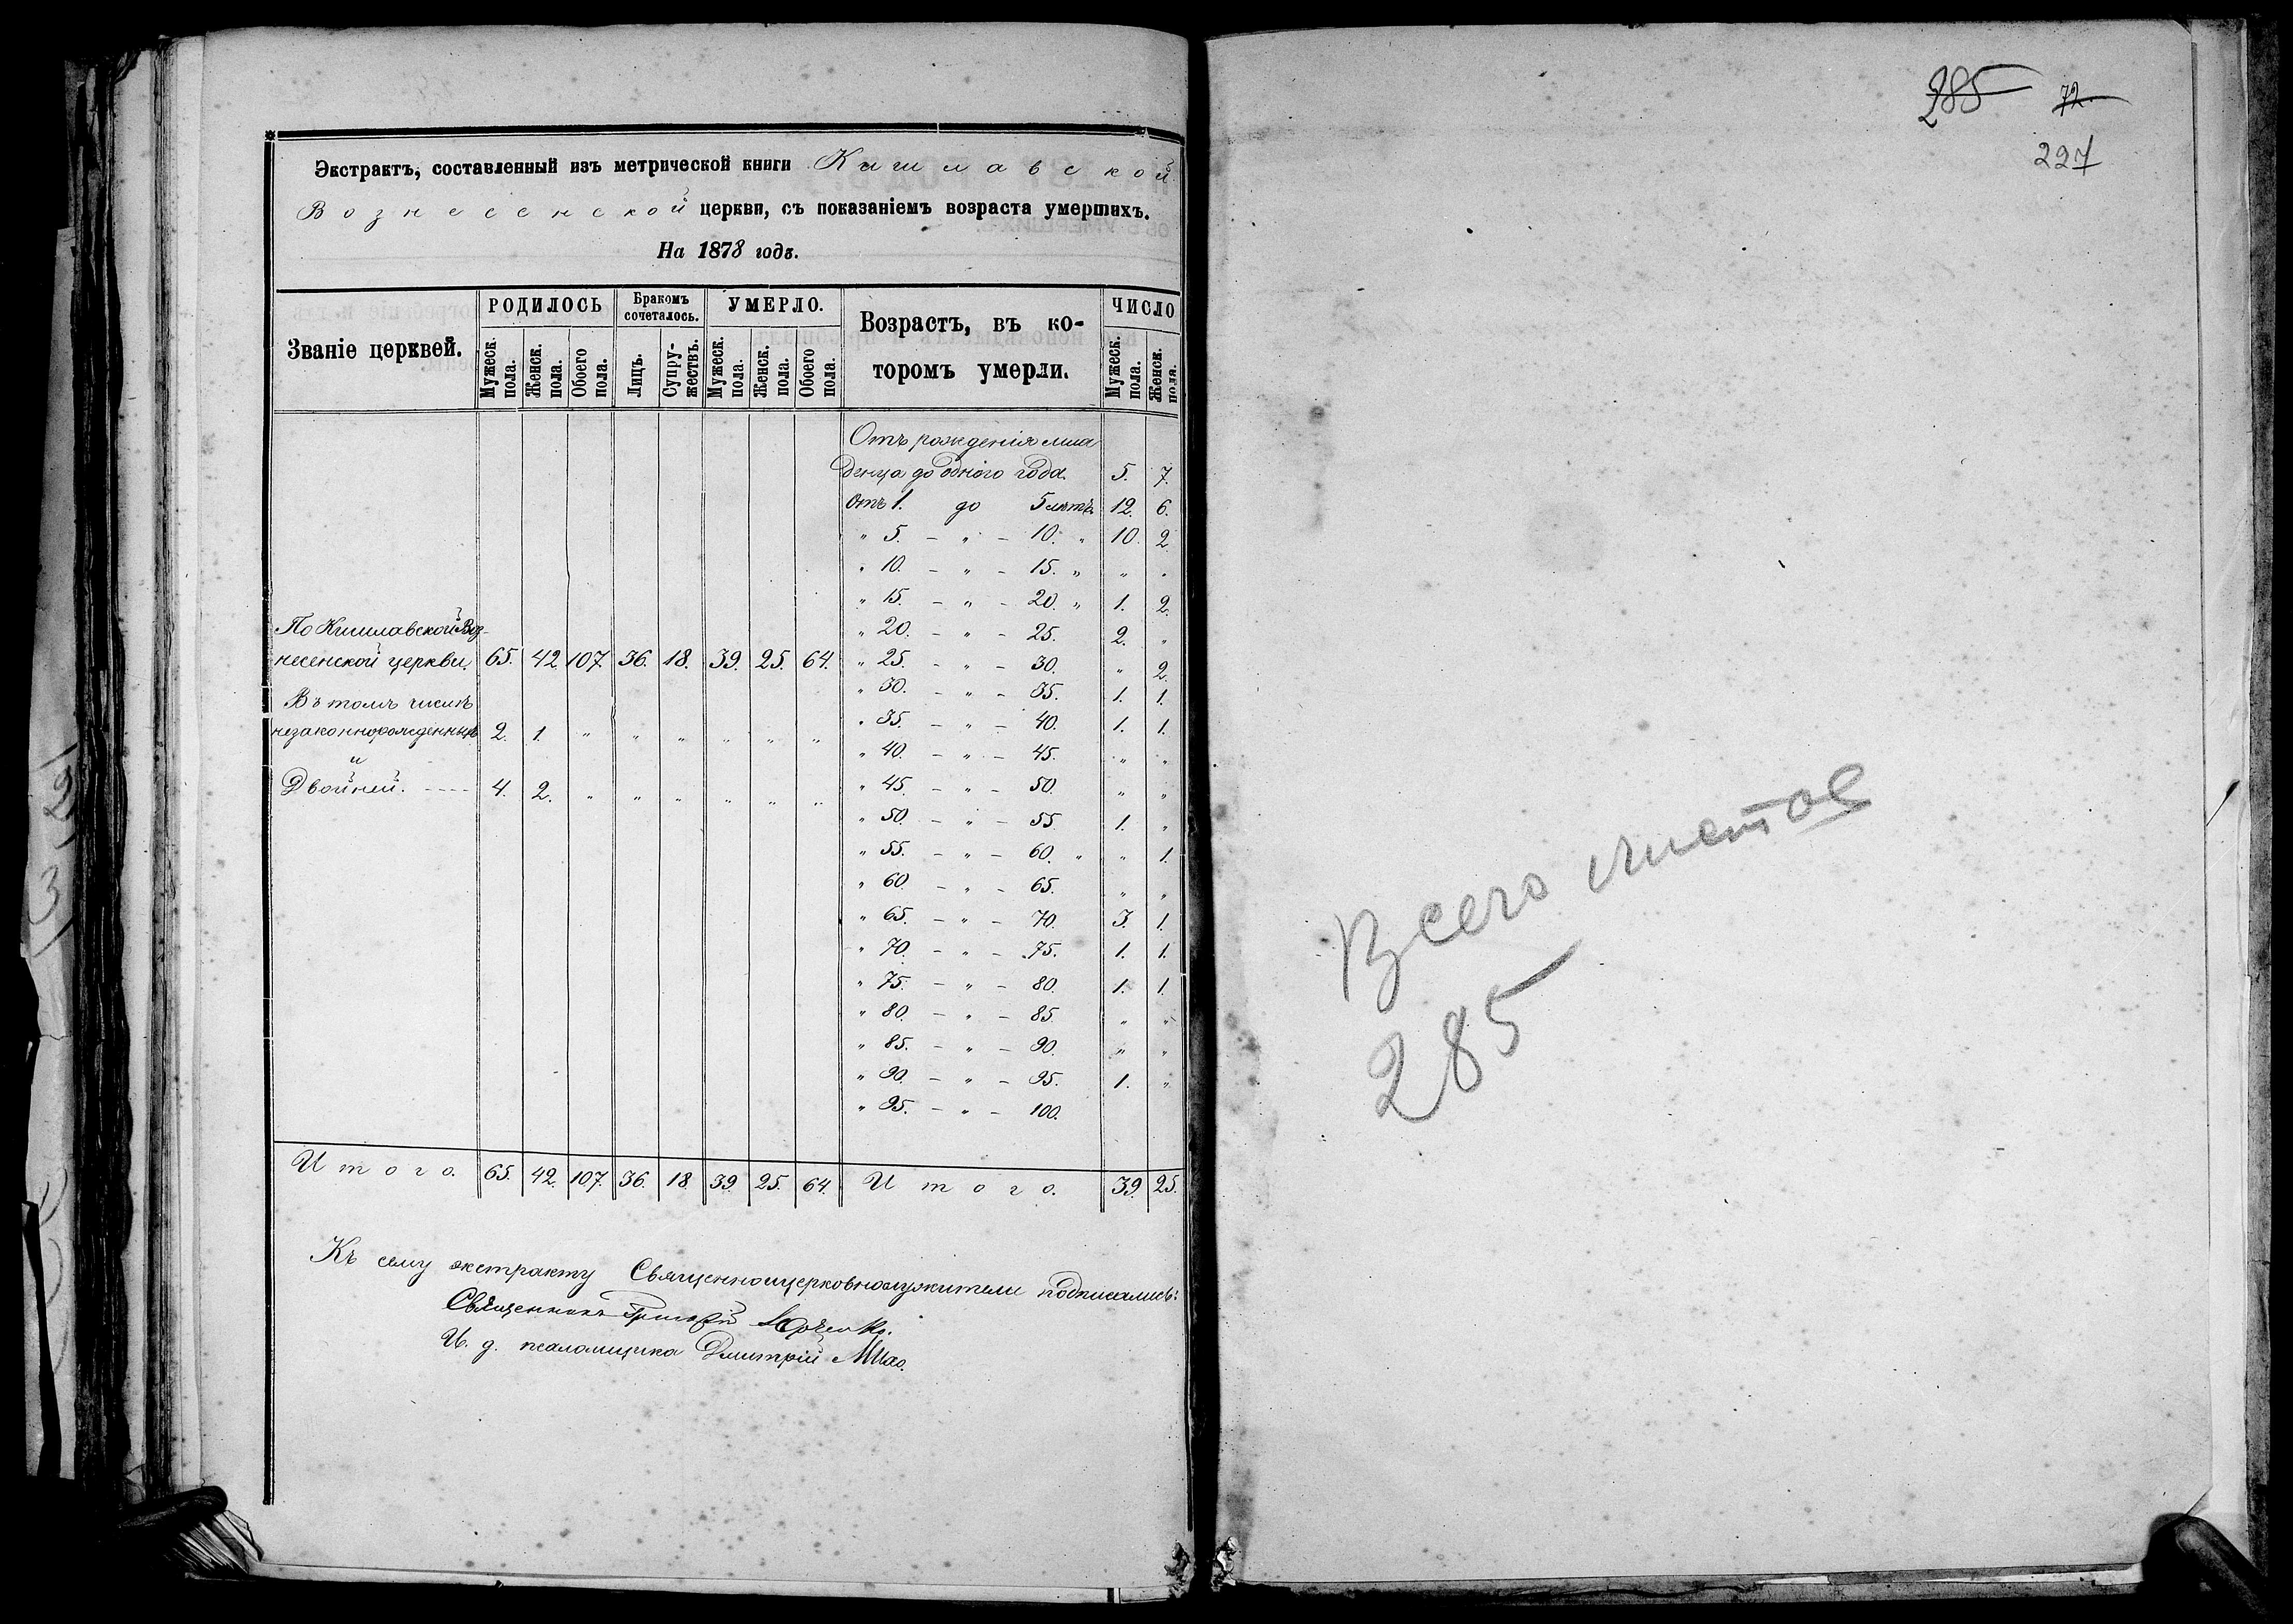 Экстрактъ, составленный изъ метрической книги Кишлавской
Вознесенской церкви, съ показаніемъ возраста умершихъ.
На 1878 годъ.
Званіе церквей.
РОДИЛОСЬ
Бракомъ сочеталось.
УМЕРЛО.
Возрастъ, въ ко-
торомъ умерли.
ЧИСЛО
Мужеск. пола.
Женск. пола.
Обоего пола.
Лицъ.
Супру-жествъ.
Мужеск. пола.
Женск. пола.
Обоего пола.
Мужеск. пола.
Женск. пола.
Отъ рожденія мла
денца до одного года. 5. 7.
Отъ 1. до 5 лѣтъ 12. 6.
" 5. – " – 10. " 10. 2.
" 10. – " – 15. " " "
" 15. – " – 20. " 1. 2.
" 20. – " – 25. 2. "
" 25. – " – 30. " 2.
" 30. – " – 35. 1. 1.
" 35. – " – 40. 1. 1.
" 40. – " – 45. " "
" 45. – " – 50. " "
" 50. – " – 55. 1. "
" 55. – " – 60. " " 1.
" 60. – " – 65. " "
" 65. – " – 70. 3. 1.
" 70. – " – 75. 1. 1.
" 75. – " – 80. 1. 1.
" 80. – " – 85. " "
" 85. – " – 90. " "
" 90. – " – 95. 1. "
" 95. – " – 100.
По Кишлавской Воз-
несенской церкви, 65. 42. 107. 36. 18. 39. 25. 64.
Въ томъ числѣ
незаконнорожденныхъ 2. 1. " " " " " "
и
Двойней. ---- 4. 2. " " " " " "
Итого. 65. 42. 107. 36. 18. 39. 25. 64. Итого. 39. 25.
Къ сему экстракту Священноицерковнослужители подписались:
Священникъ Григорій
И. д. псаломщика Дмитрій
285 72.
227
Всего листов
285